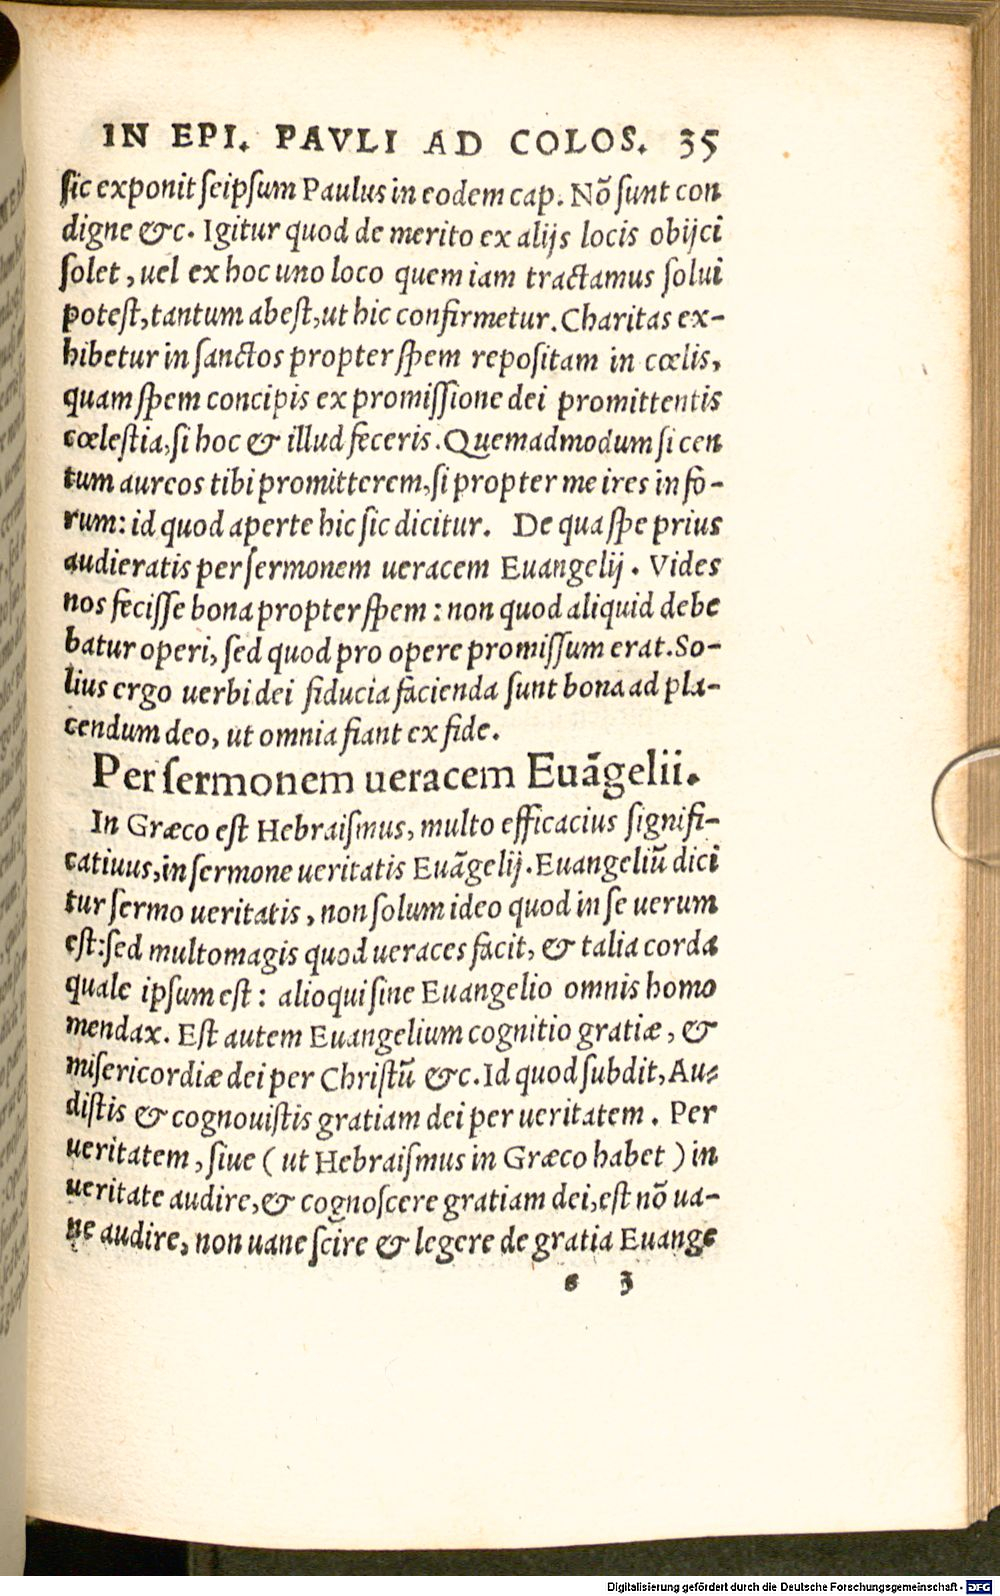 IN EPI. PAVLI AD COLOS. 35
sic exponit seipsum Paulus in eodem cap. Nõ sunt con
digne &c. Igitur quod de merito ex alijs locis obijci
solet, uel ex hoc uno loco quem iam tractamus solui
potest, tantum abest, ut hic confirmetur. Charitas ex-
hibetur in sanctos propter spem repositam in cœlis,
quam spem concipis ex promissione dei promittentis
cœlestia, si hoc & illud feceris. Quemadmodum si cen
tum aureos tibi promitterem, si propter me ires in fo-
rum: id quod aperte hic sic dicitur. De qua spe prius
audieratis per sermonem ueracem Euangelij. Vides
nos fecisse bona propter spem: non quod aliquid debe
batur operi, sed quod pro opere promissum erat. So-
lius ergo uerbi dei fiducia facienda sunt bona ad pla-
cendum deo, ut omnia fiant ex fide.
Per sermonem ueracem Euãgelii.
In Græco est Hebraismus, multo efficacius signifi-
catiuus, in sermone ueritatis Euãgelij. Euangeliũ dici
tur sermo ueritatis, non solum ideo quod in se uerum
est: sed multomagis quod ueraces facit, & talia corda
quale ipsum est: alioqui sine Euangelio omnis homo
mendax. Est autem Euangelium cognitio gratiæ, &
misericordiæ dei per Christũ &c. Id quod subdit, Au-
distis & cognouistis gratiam dei per ueritatem. Per
ueritatem, siue (ut Hebraismus in Græco habet) in
ueritate audire, & cognoscere gratiam dei, est nõ ua-
ne audire, non uane scire & legere de gratia Euange
e 3
Digitalisierung gefördert durch die Deutsche Forschungsgemeinschaft - DFG